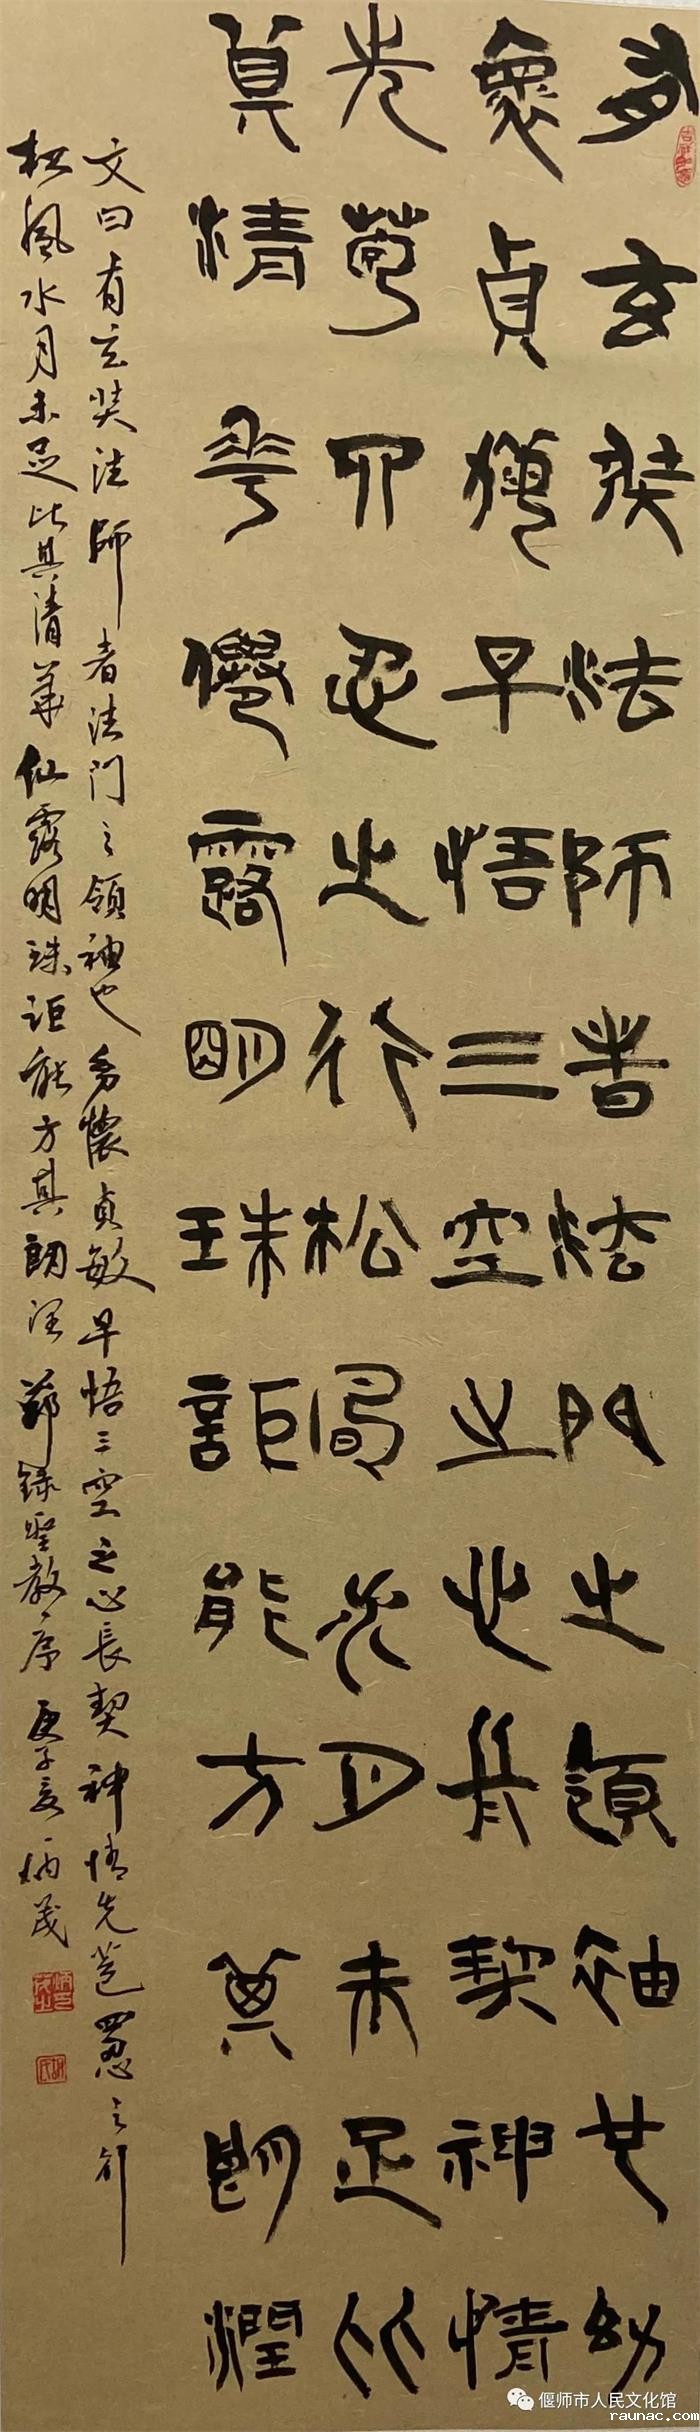 有玄奘法師者法門之領袖也幼
懷貞敏早悟三空之心長契神情
先苞四忍之行松風水月未足比
其清華僊露明珠詎能方其朗潤
文曰有玄奘法師者法門之領袖也幼懷貞敏早悟三空之心長契神情先苞四忍之行
松風水月未足比其清華仙露明珠詎能方其朗潤 節錄聖教序 庚子夏 炳茂
吉祥如意
偃师市人民文化馆
www.raunac.com